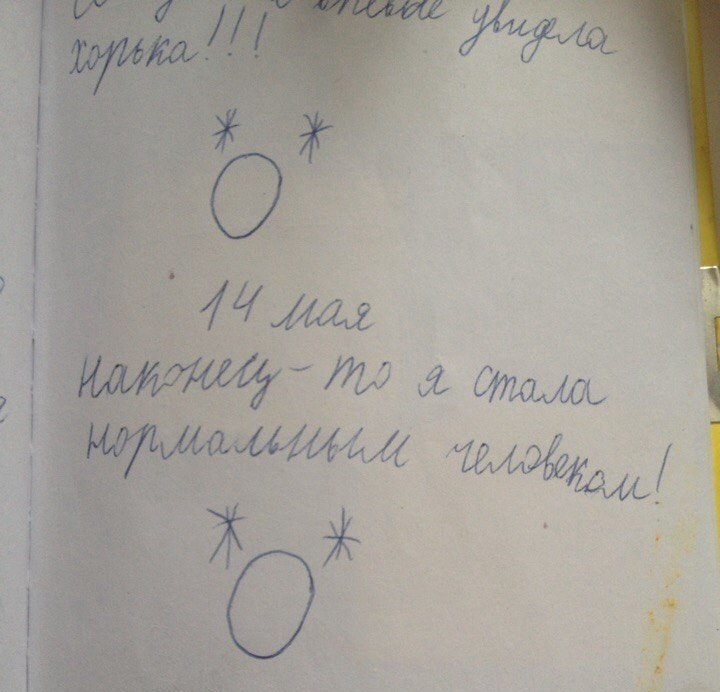 впервые увидела
хорька!!!
14 мая
наконец-то я стала
нормальным человеком!